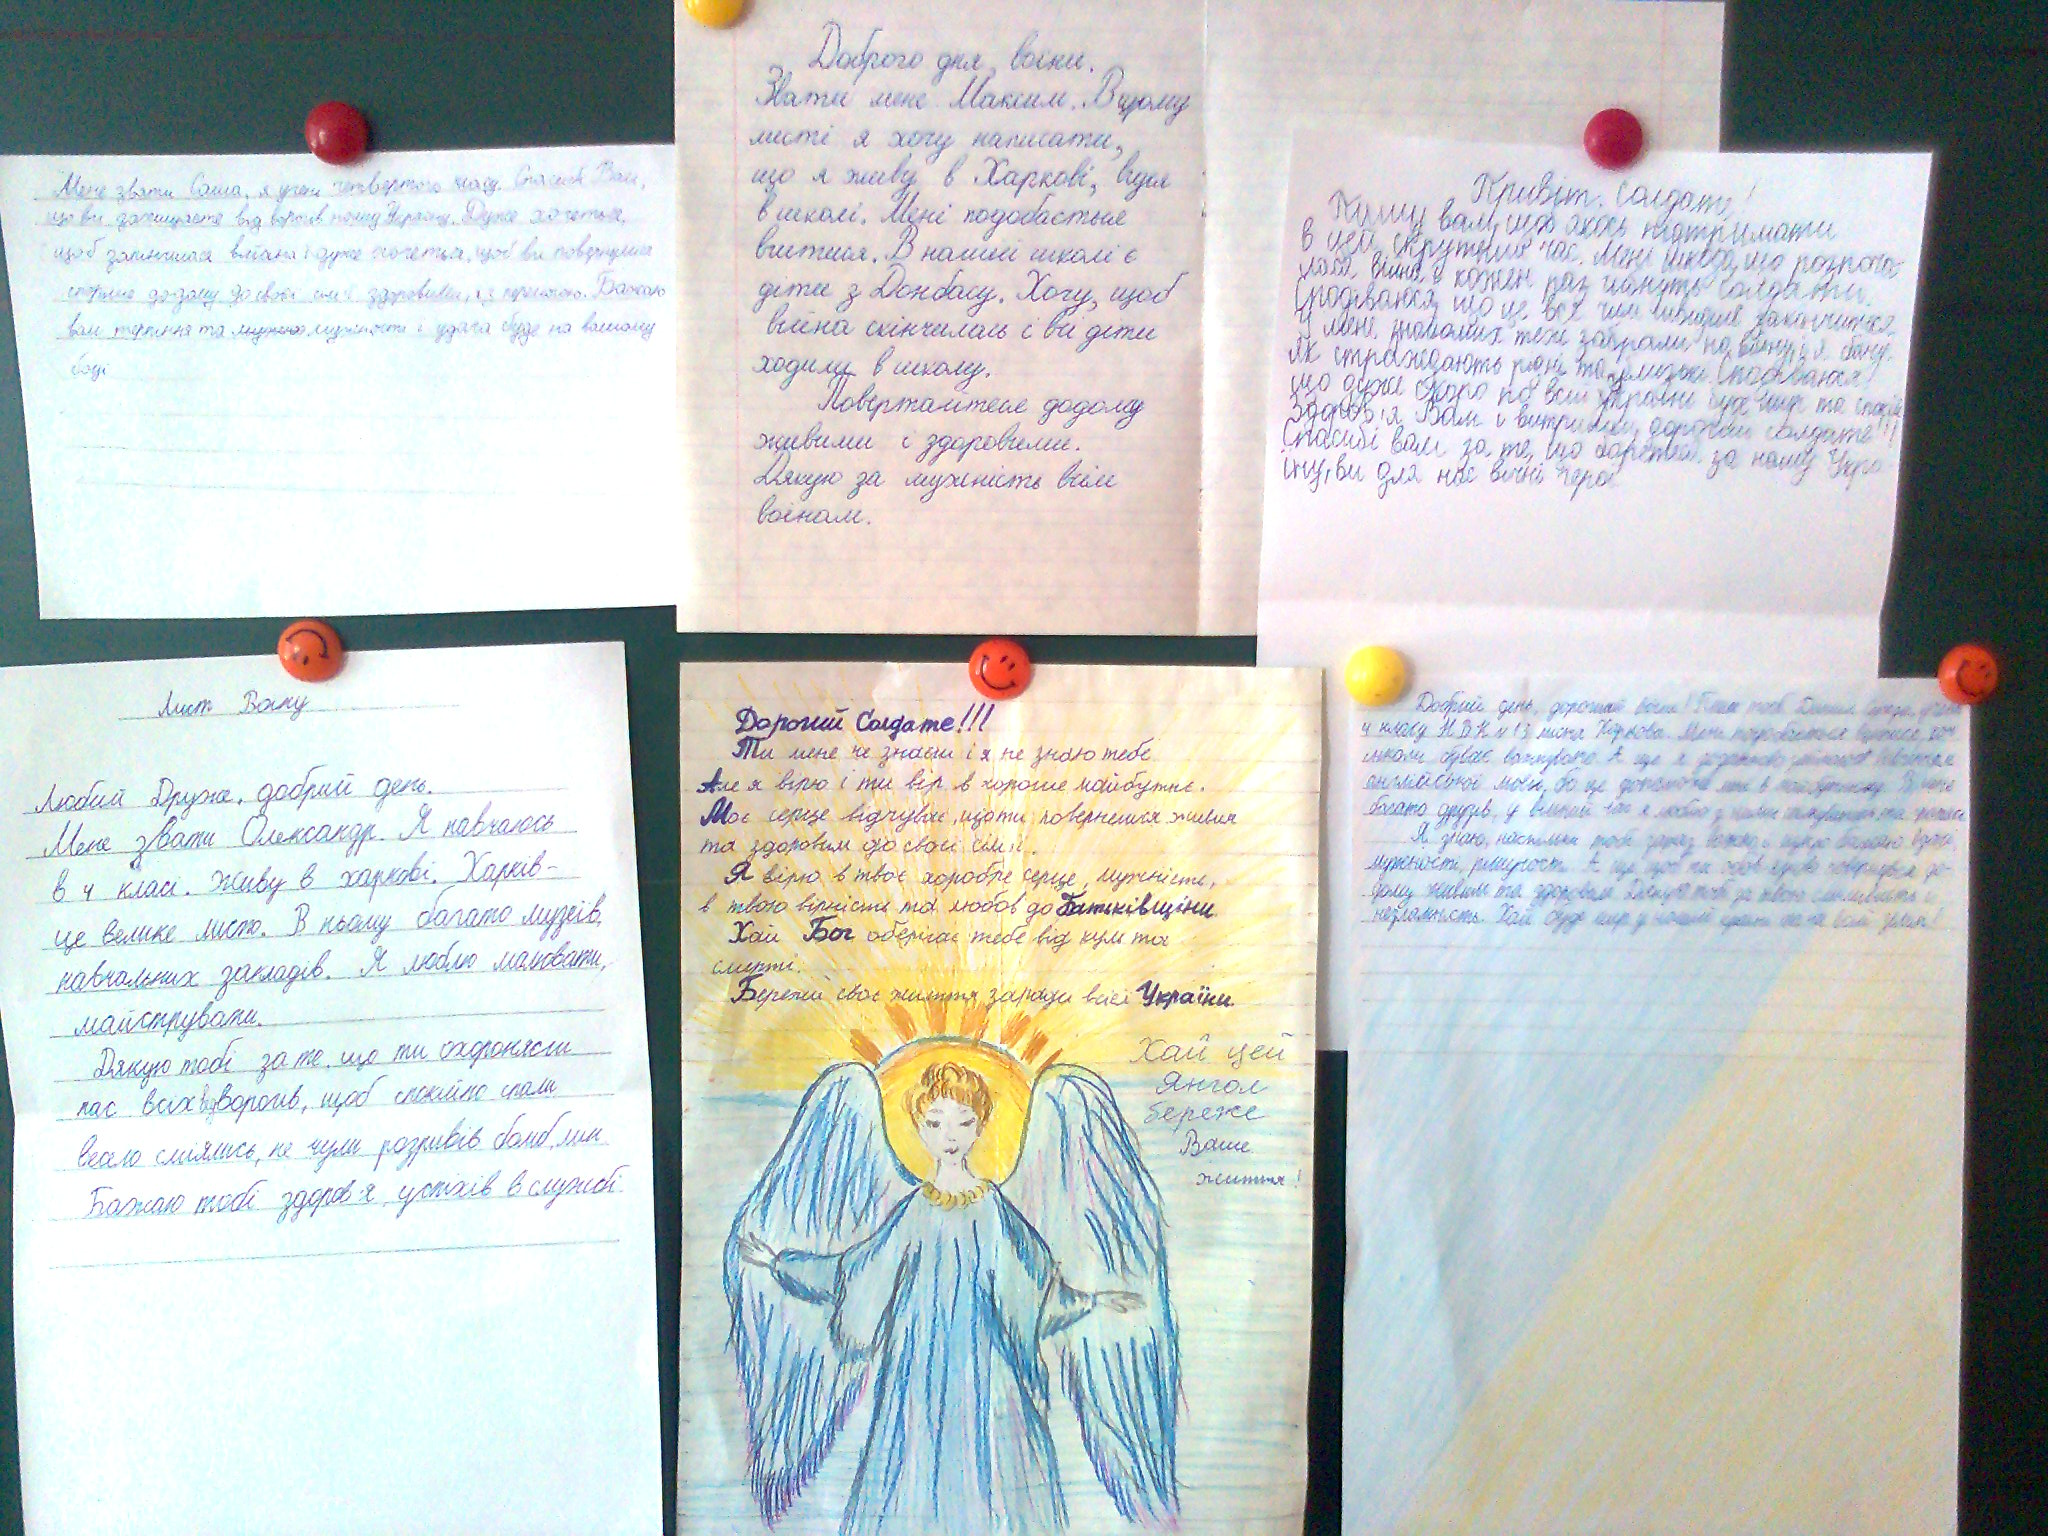 Мене звати Саша, я учень четвертого класу. Спасибі Вам,
що ви захищаєте від ворогів нашу Україну. Дуже хочеться,
щоб закінчилася війна і дуже хочеться, щоб ви повернулися
скоріше додому до своєї сім'ї здоровими, і з перемогою. Бажаю
вам терпіння та мужності і удача буде на вашому
боці
Доброго дня, воїни.
Звати мене Максим. В цьому
листі я хочу написати,
що я живу в Харкові, вчуся
в школі. Мені подобається
вчитися. В нашій школі є
діти з Донбасу. Хочу, щоб
війна скінчилась і ви діти
ходили в школу.
Повертайтеся додому
живими і здоровими.
Дякую за мужність всім
воїнам.
Привіт, солдате!
Пишу вам, щоб якось підтримати
в цей скрутний час. Мені шкода, що розпоча-
лася війна і кожен раз гинуть солдати.
Сподіваюся, що це все чим швидше закончится.
У мене знайомих теж забрали на війну і я бачу,
як страждають рідні та близькі. Сподіваюся,
що дуже скоро по всій Україні буде мир та спокій.
Здоров'я Вам і витримки, дорогий солдате!!!
Спасибі вам за те, що боретеся за нашу Укра-
їну, ви для нас вічні герої
Лист Воїну
Любий Друже, добрий день.
Мене звати Олександр. Я навчаюсь
в 4 класі. Живу в харкові. Харків-
це велике місто. В ньому багато музеїв,
навчальних закладів. Я люблю малювати,
майструвати.
Дякую тобі за те, що ти охороняєш
нас всіх від ворогів, щоб спокійно спали
весело сміялись, не чули розривів бомб, мин
Бажаю тобі здоров'я, успіхів в службі
Дорогий Солдате!!!
Ти мене не знаєш і я не знаю тебе.
Але я вірю і ти вір в хороше майбутнє.
Моє серце відчуває, що ти повернешся живим
та здоровим до своєї сім'ї.
Я вірю в твоє хоробре серце, мужність,
в твою вірність та любов до Батьківщини.
Хай Бог оберігає тебе від куль та
смерті.
Бережи своє життя заради всієї України.
Хай цей
Янгол
береже
Ваше
життя!
Добрий день, дорогий воїн! Пише тобі учень
4 класу Н В К № 13 міста Харкова. Мені подобається вчитися, хоч
інколи буває важкувато. А ще я додатково займаюся вивченням
англійської мови, бо це допоможе мені в майбутньому. В мене
багато друзів, у вільний час я люблю з ними
Я знаю, наскільки тобі зараз важко і щиро бажаю вдачі,
мужності, рішучості. А ще, щоб ти повернувся до-
дому живим та здоровим. Дякую тобі за твою сміливість і
незламність. Хай буде мир у нашій країні та на всій землі!